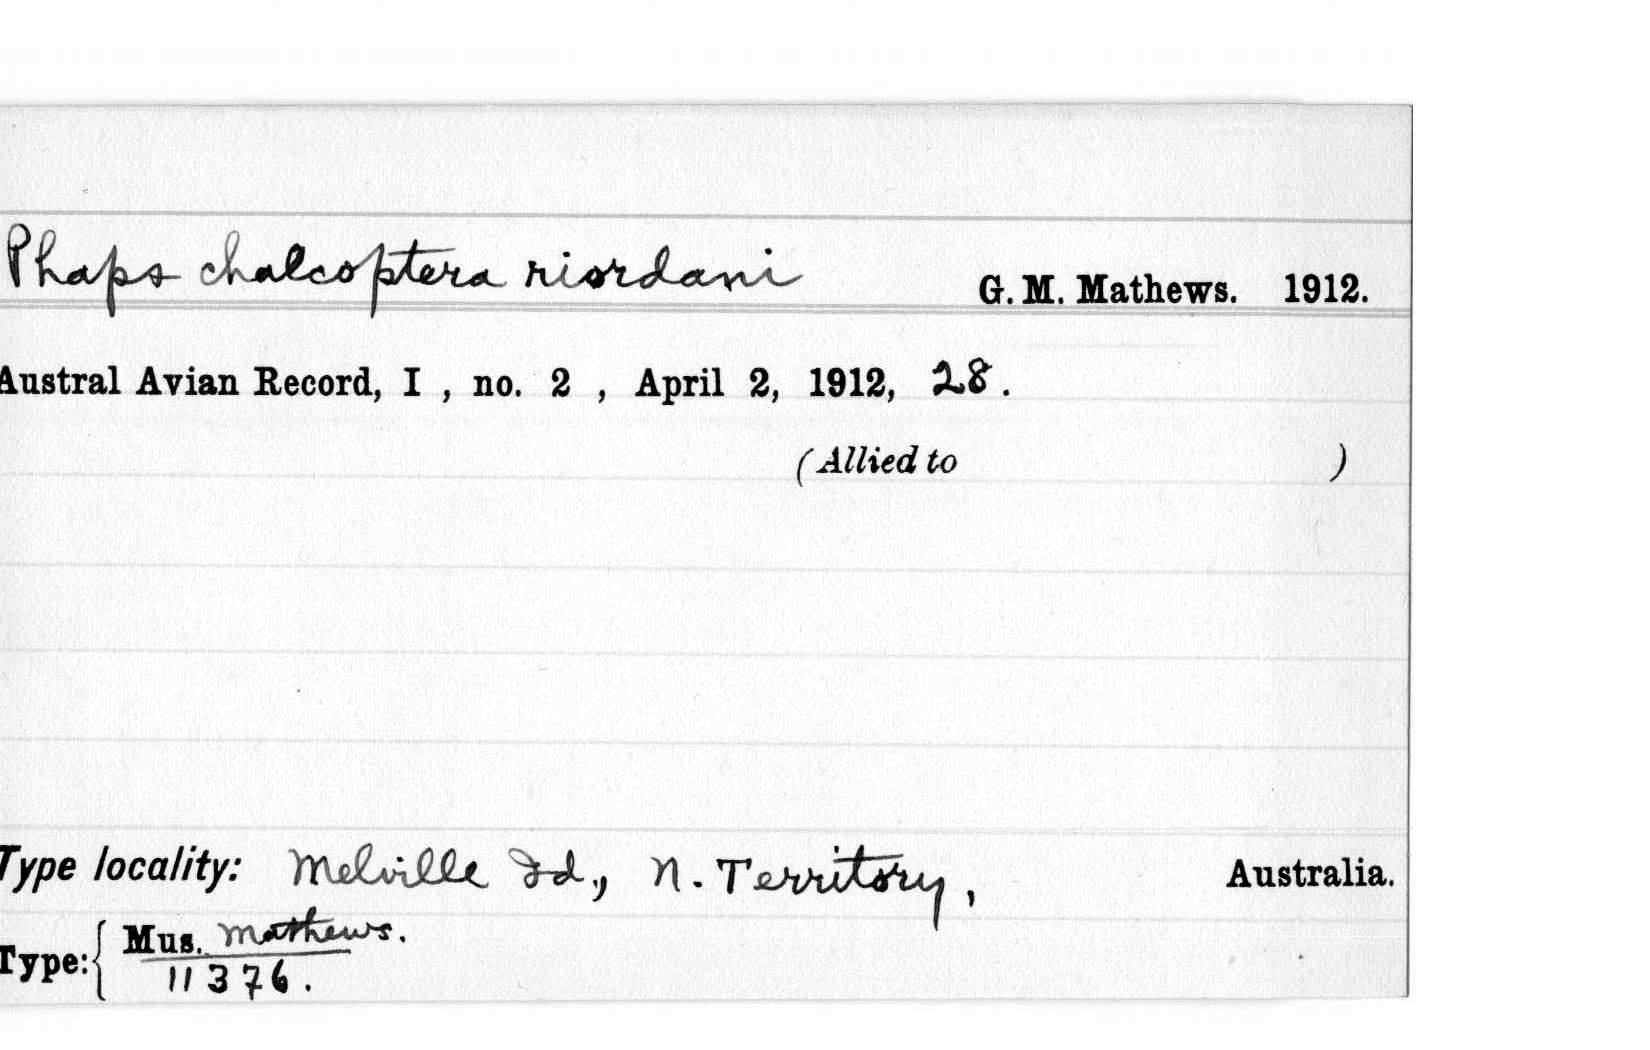 Phaps chalcoptera riordani G. M. Mathews. 1912.
Austral Avian Record, I , no. 2 , April 2, 1912, 28.
(Allied to )
Type locality: Melville Id., N. Territory, Australia.
Type: { Mus. Mathews.
11376.